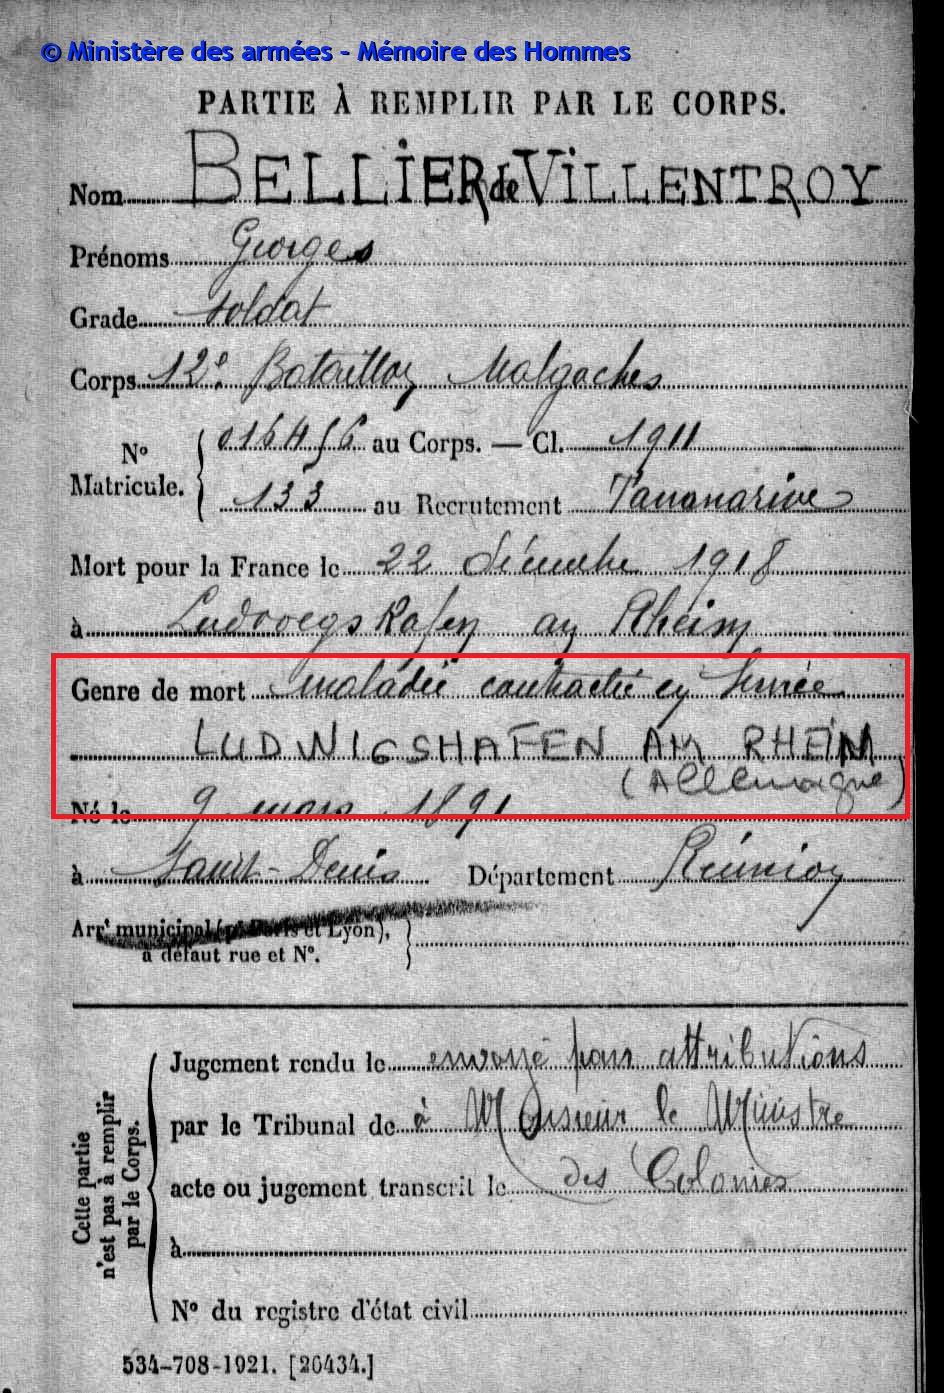 © Ministère des armées - Mémoire des Hommes
PARTIE À REMPLIR PAR LE CORPS.
Nom BELLIER de VILLENTROY
Prénoms Georges
Grade Soldat
Corps 12e Bataillon Malgaches
N° Matricule. 016456 au Corps. — Cl. 1911
133 au Recrutement Tananarive
Mort pour la France le 22 décembre 1918
à Ludovegskafen am Rheim
Genre de mort maladie contractée en Service
LUDWIGSHAFEN AM RHEIN
(Allemagne)
Né le 9 mars 1891
à Saint-Denis Département Réunion
Arrt municipal (pr Paris et Lyon),
à défaut rue et N°.
Cette partie n'est pas à remplir par le Corps.
Jugement rendu le envoyé pour attributions
par le Tribunal de à Monsieur le Ministre
acte ou jugement transcrit le des Colonies
à
N° du registre d'état civil
534-708-1921. [26434.]